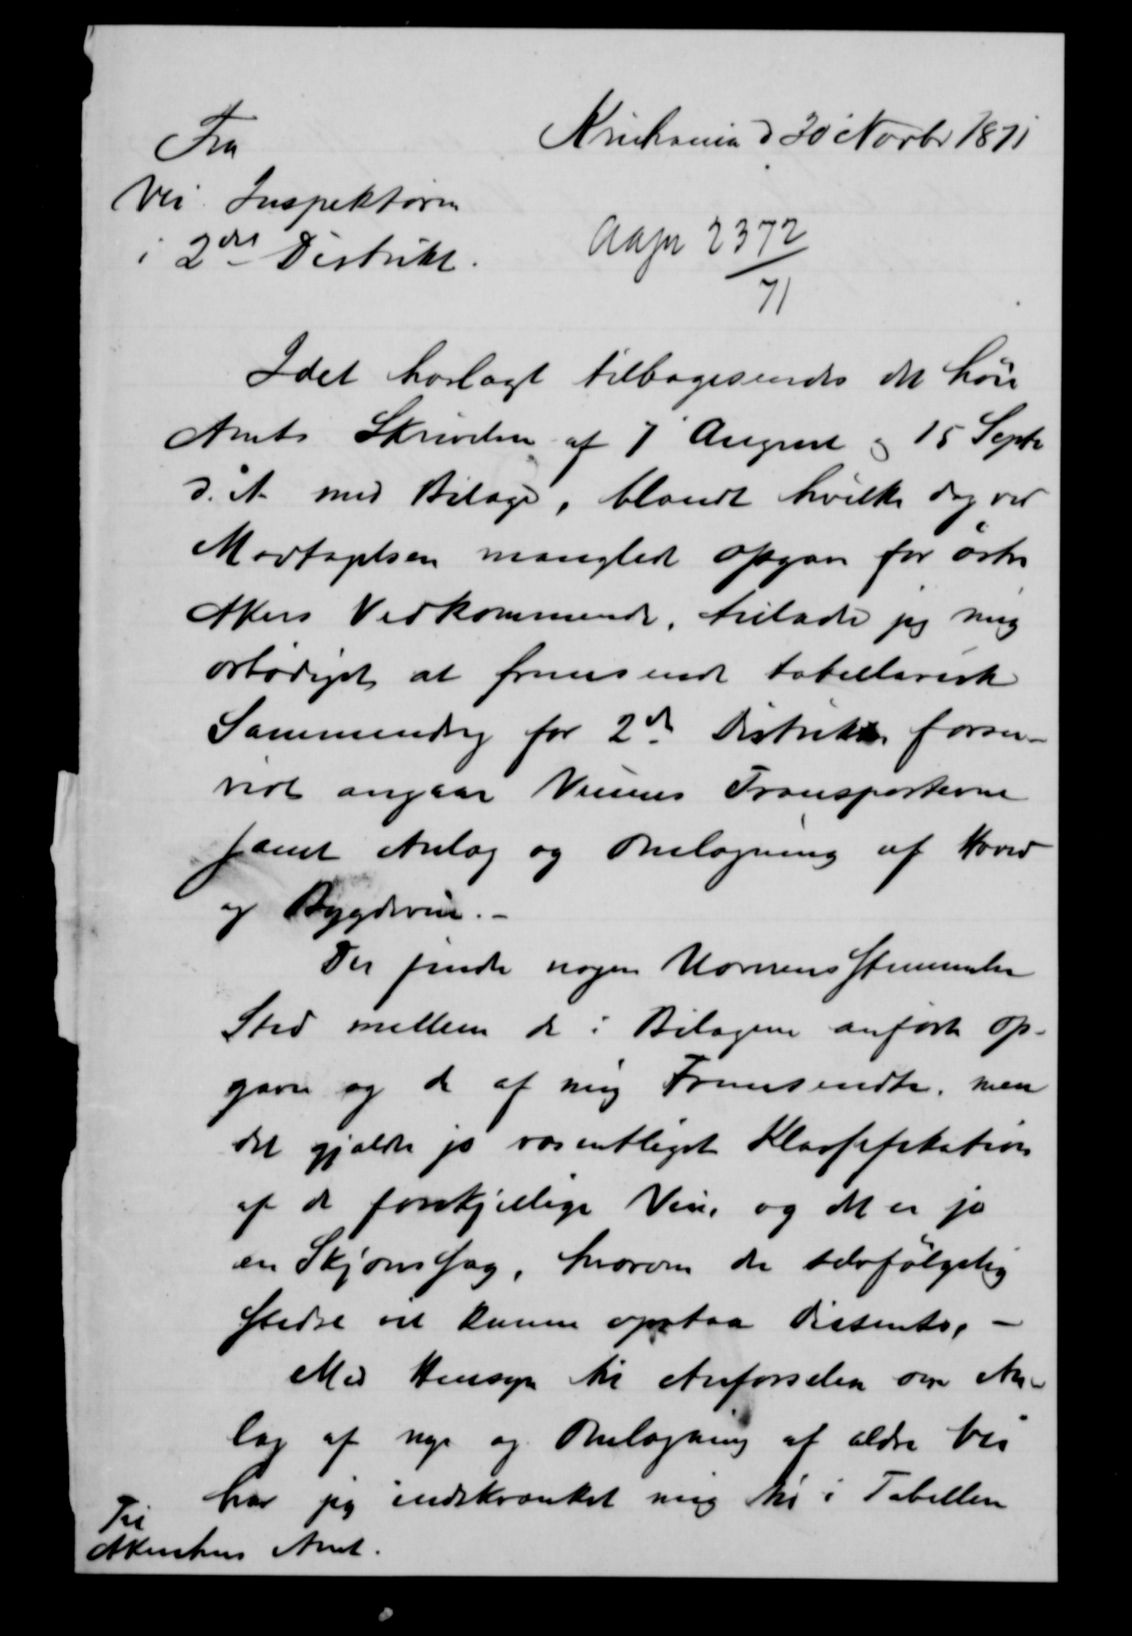 Fra
Vei Inspektøren
i 2det Distrikt.
Kristiania d 30 Novbr 1871
Aajn 2372
71
Idet hoslagt tilbagesendes det høie
Amts Skrivelser af 7 August og 15 Septr
d. A. med Bilage, blandt hvilke dog ved
Modtagelsen manglede Opgave for østre
Akers Vedkommende, tillader jeg mig
ærbødigst at fremsende tabellarisk
Sammendrag for 2det Distrikt forsaa-
vidt angaar Veienes Transporterne
samt Anlæg og Omlægning af Hoved
og Bygdeveie.-
Der finder nogen Uoverensstemmelse
Sted mellem de i Bilagene anførte Op-
gaver og de af mig Fremsendte, men
det gjælder jo væsentligst Klassifikation
af de forskjellige Veie, og det er jo
en Skjønssag, hvorom der selvfølgelig
stedse vil kunne opstaa Dissents, -
Med Hensyn til Anførselen om An-
læg af nye og Omlægning af ældre Vei
har jeg indskrænket mig til i Tabellen
Til
Akershus Amt.